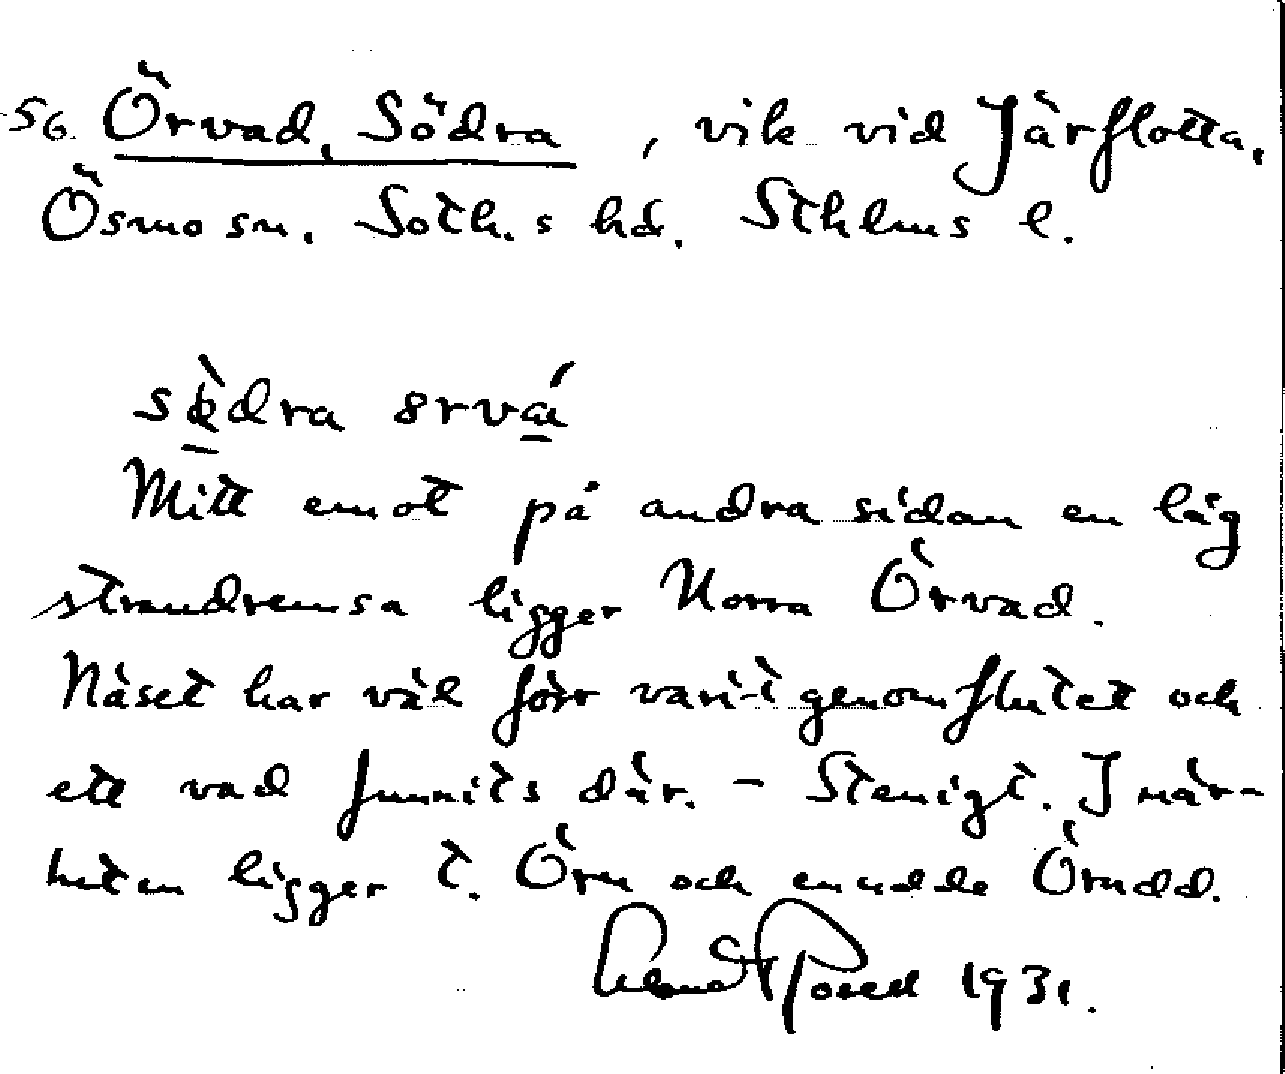 56. Örvad, Södra, vik vid Järflotta,
Ösmo sn. Soth.s hd. Sthlms l.
Mitt emot på andra sidan en låg
strandremsa ligger Norra Örvad.
Näset har väl förr varit genomflutet och
ett vad funnits där. – Stenigt. I när-
heten ligger t. Örn och en udde Örudd.
1931.